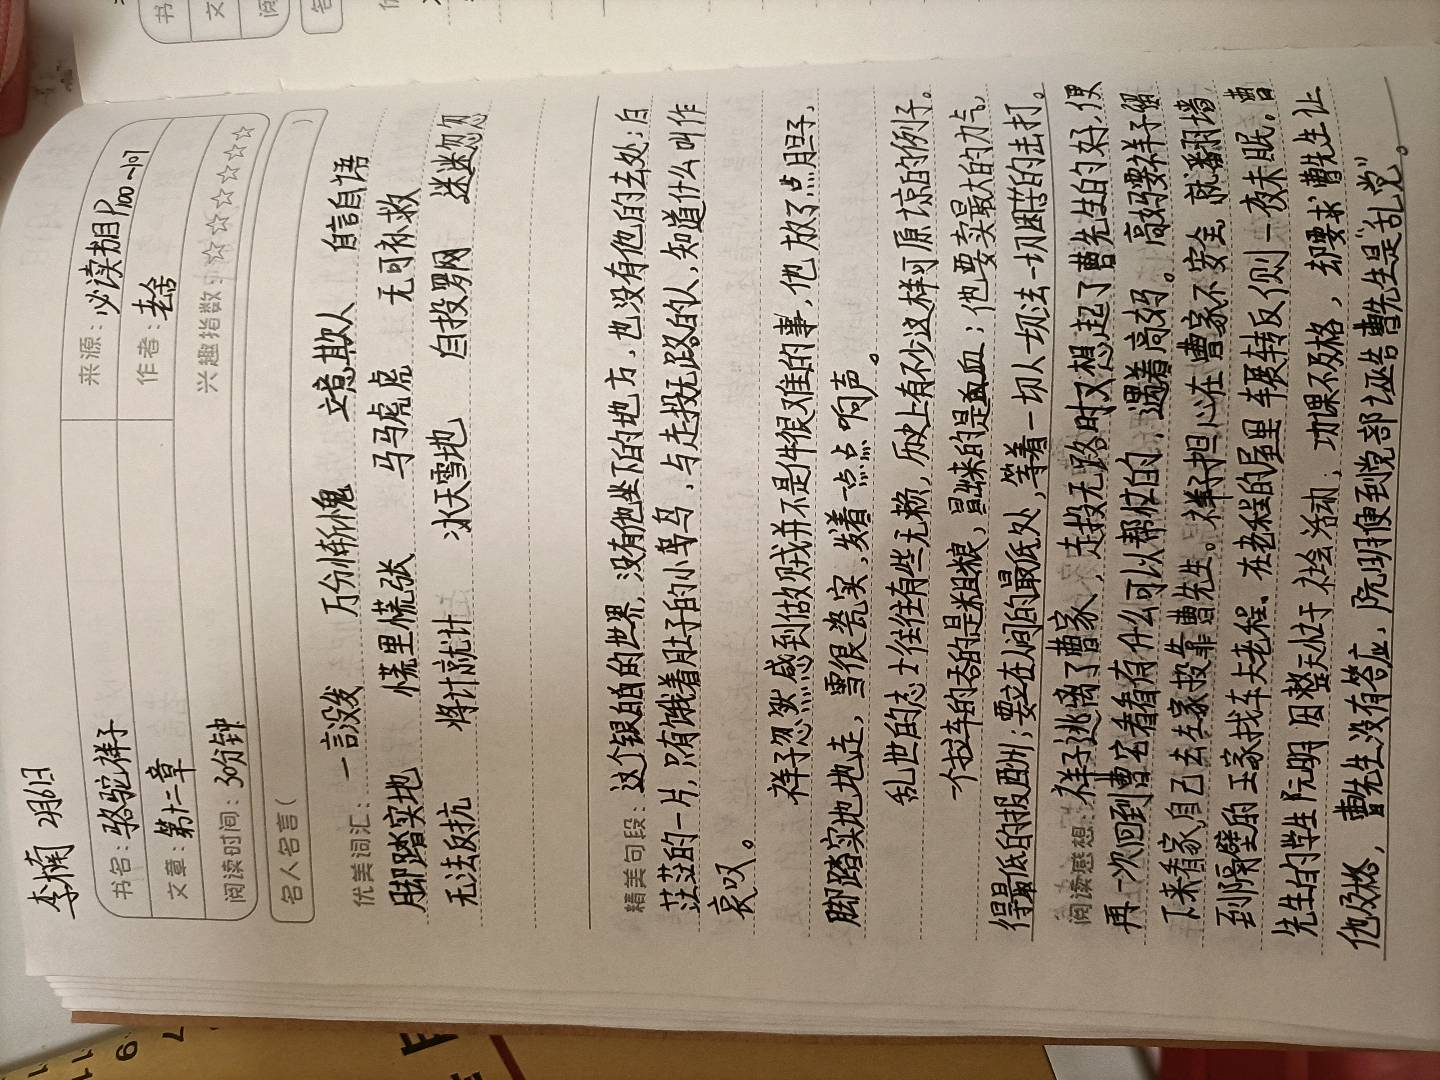 李楠 2月6日
书名：骆驼祥子 来源：必读书目P100~小问
文章：第十二章 作者：老舍
阅读时间：30分钟 兴趣指数：☆☆☆☆☆☆
名人名言（ ）
优美词汇：一言设发 万分惭愧 立意欺人 自言自语
脚踏实地 慌里慌张 马马虎虎 无可补救
无法反抗 将计就计 冰天雪地 自投罗网 迷迷忽忽
精美句段：这个银白的世界，没有他坐下的地方，也没有他的去处；白
茫茫的一片，只有饿着肚子的小鸟鸟，与走投无路的人，知道什么叫作
哀叹。
祥子忽然感到做贼并不是件很难的事，他放了点胆子，
脚踏实地地走，雪很瓷实，发着一点点响声。
乱世的志士往往有些无赖，历史上有不少这样可原谅的例子。
一个拉车的吞的是粗粮，冒出来的是血；他要卖最大的力气，
得最低的报酬；要立在人间的最低处，等着一切人一切法一切困苦的击打。
阅读感想：祥子逃离了曹家，走投无路时又想起了曹先生的好，便
再一次回到曹宅看看有什么可以帮忙的，遇着高妈。高妈要祥子留
下来看家，自己去左家投靠曹先生。祥子担心在曹家不安全，就翻墙
到隔壁的王家找车夫老程、在老程的屋里辗转反侧一夜未眠。曹
先生的学生阮明因整天处于社会活动，功课不及格，却要求曹先生让
他及格，曹先生没有答应，阮明便到党部诬告曹先生是“乱党”。